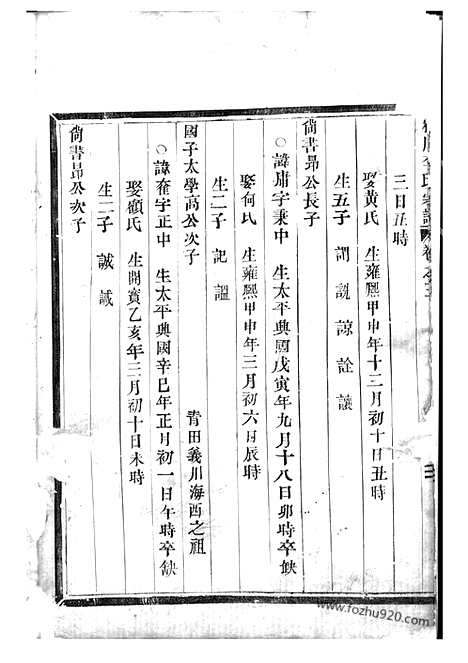 三日丑時
娶黃氏 生雍熙甲申年十二月初十日丑時
生五子 謂 諒 詮 讓
尙書昻公長子
○諱庸字秉中 生太平興國戊寅年九月十八日卯時卒缺
娶何氏 生雍熙甲申年三月初六日辰時
生二子 記 謳
國子太學高公次子 青田義川海西之祖
○諱奮字正中 生太平興國辛巳年正月初一日午時卒缺
娶顧氏 生開寶乙亥年三月初十日未時
生二子 誠 誡
尙書昻公次子
www.fozhu920.com